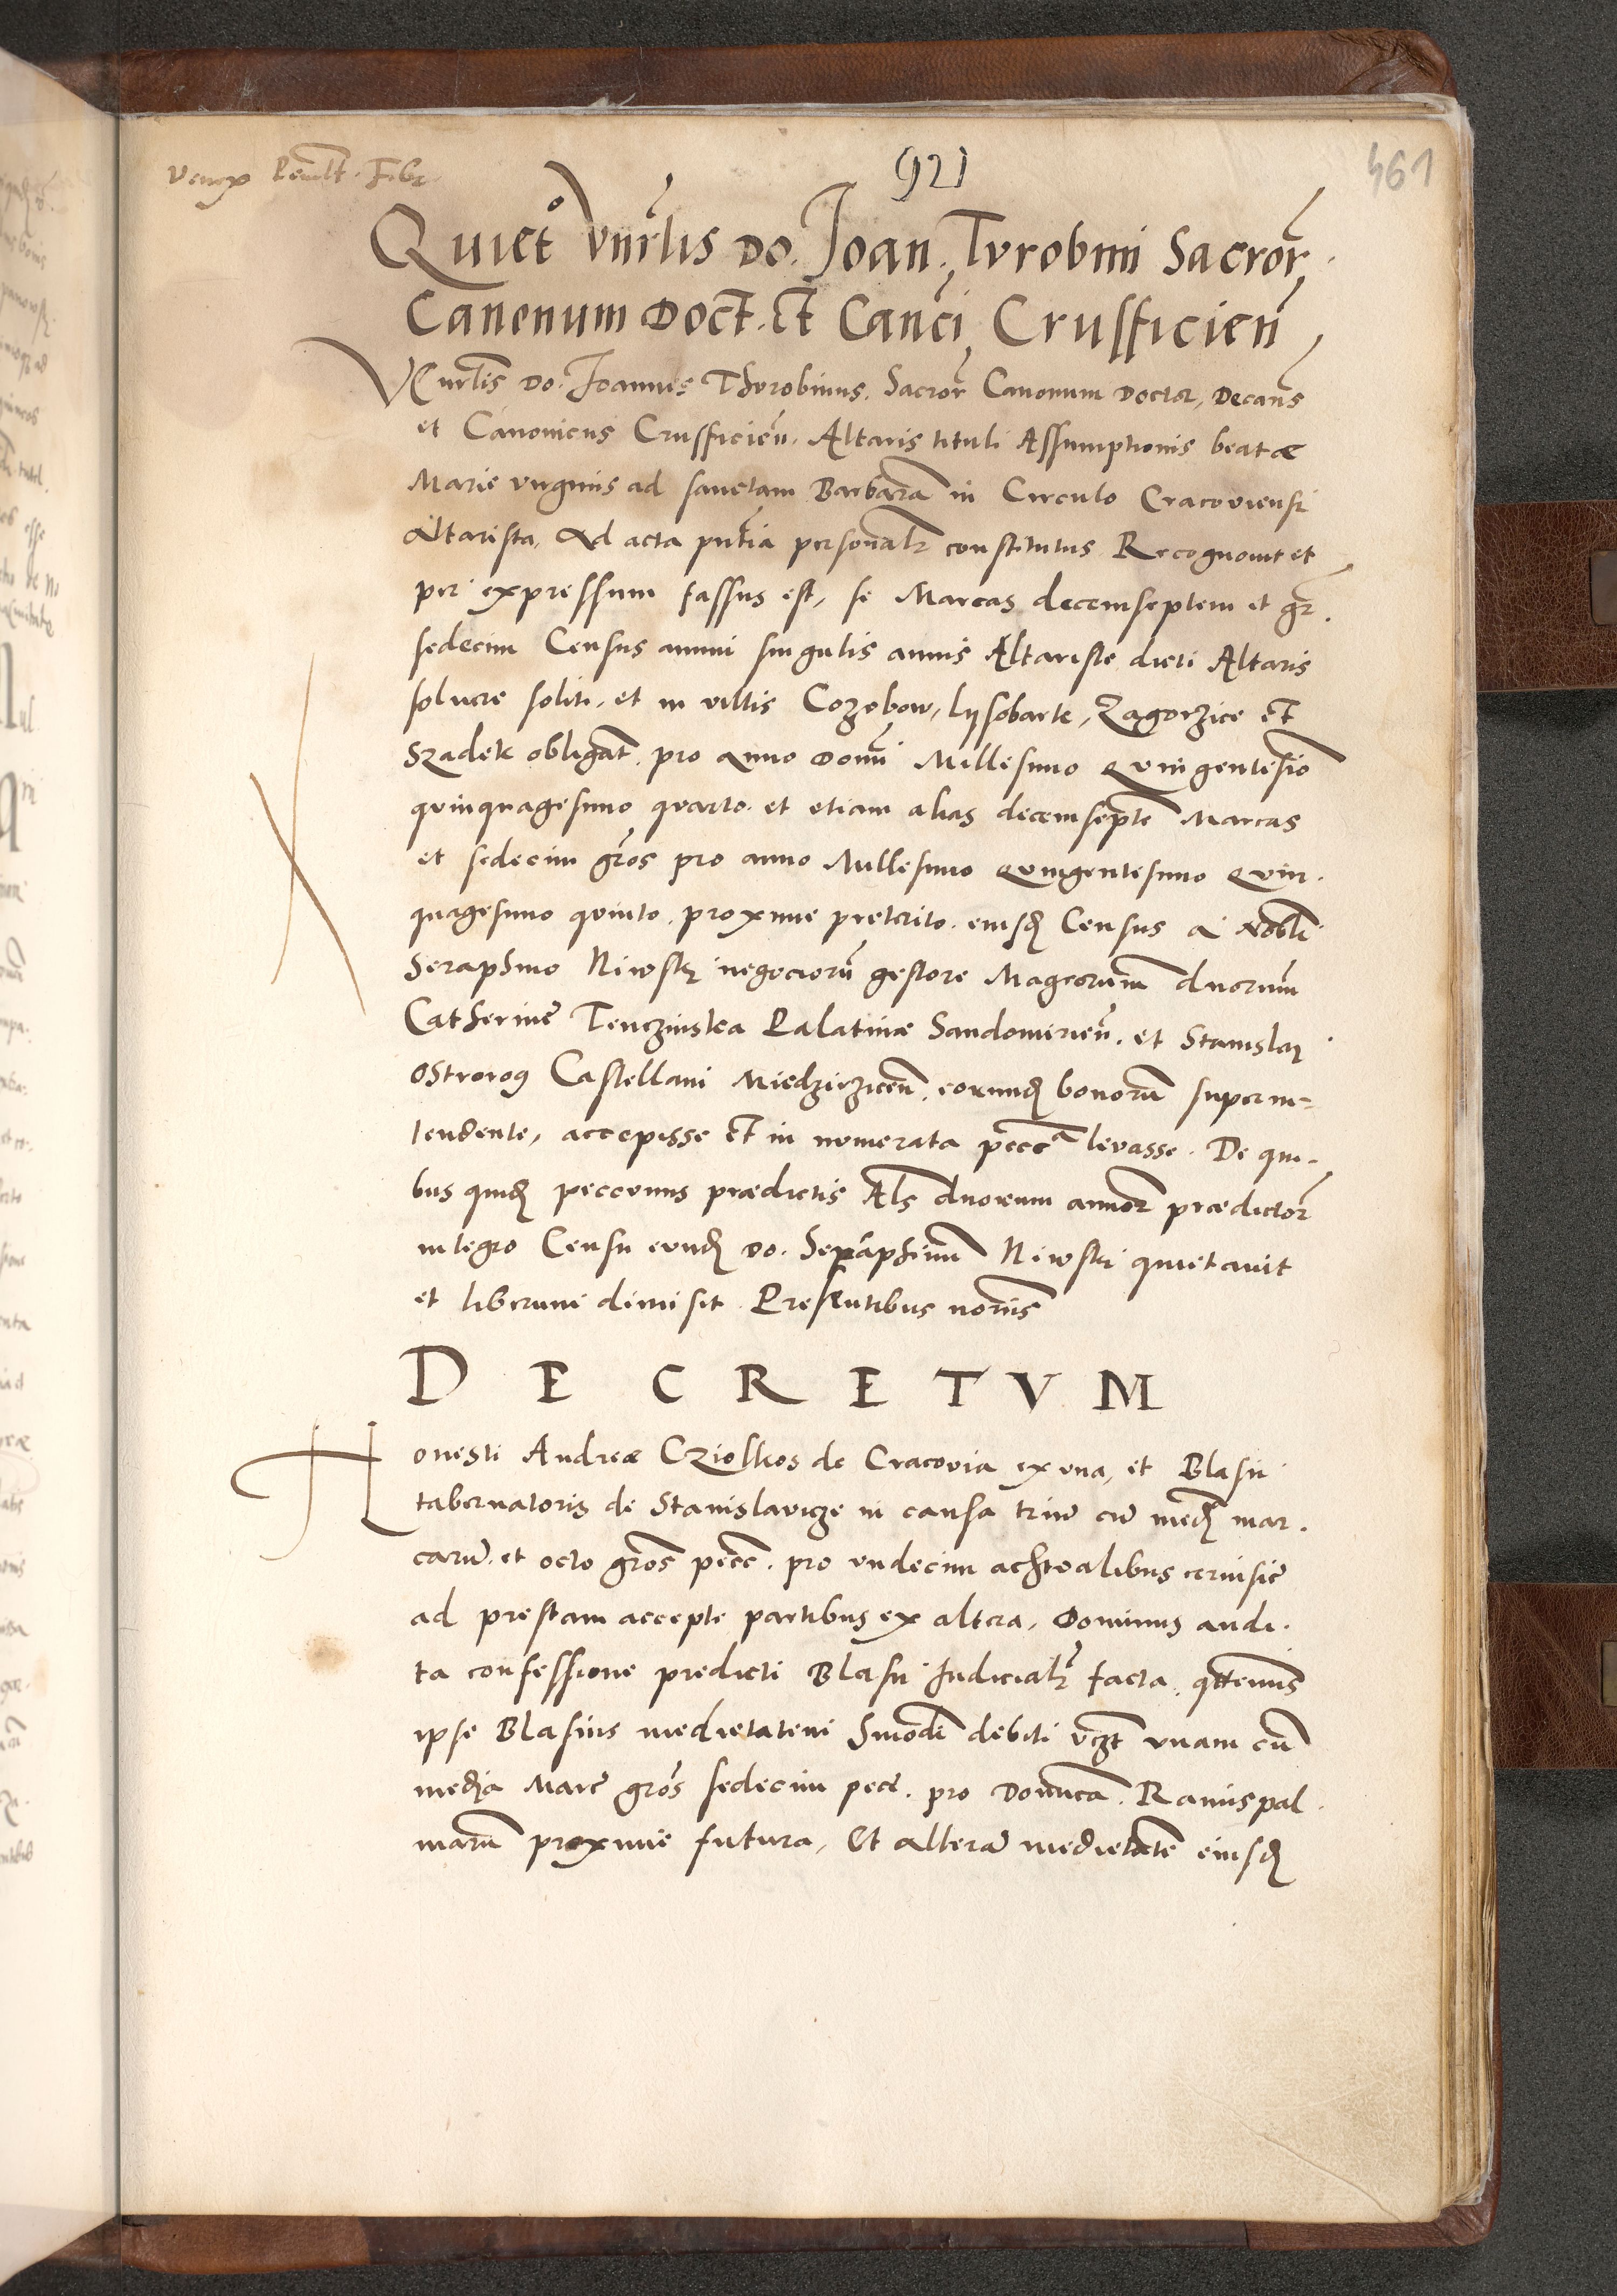 461
921
Quiet° Vnrlis Do. Joan. Turobini Sacror
Canonum Doct. et Canci Crusficien
Venrlis Do. Joannes Thurobinus, Sacror Canonum Doctor, Decans
et Canonicus Crusficien. Altaris tituli Assumptionis beatæ
Marie virginis ad sanctam Barbaram in Circulo Cracoviensi
Altarista, Ad acta pntia personalr constitutus Recognovit et
per expressum fassus est, se Marcas decemseptem et gr.
sedecim Census annui singulis annis Altariste dicti Altaris
solvere soliti, et in villis Cozobow, Lysobark, Zagorzice et
Szadek obligat. pro Anno Domi Millesimo Quingentesimo
quinquagesimo quarto. et etiam alias decemsepte Marcas
et sedecim gros pro anno Millesimo Quingentesimo Quin-
quagesimo quinto. proxime preterito. eiusd Census a Nobli
Seraphino Niwski negociorum gestore Magcorum duorum
Catherine Tenczinska Palatinæ Sandomirien. et Stanislai
Ostrorog Castellani Miedzirzicen. eorund bonorum superin-
tendente, accepisse et in numerata pecca levasse. De qui-
bus quid peccunus prædictis Als duorum annor prædictor
integro Censu eund Do. Seraphinum Niwski quietavit
et liberum dimisit Presentibus noriis
DECRETVM
Honesti Andreæ Cziolkos de Cracovia ex una, et Blasii
tabernatoris de Stanislavicze in causa trium cum med mar-
carum. et octo gros pecc. pro undecim achtealibus cervisie
ad prestam accepte partibus ex altera, Dominus audi-
ta confessione predicti Blasii Judicialr facta, qttenus
ipse Blasius medietatem hmodi debiti vzt unam cum
media Marc gros sedecim pecc. pro Domca Ramispal-
marum proxime futura, Et alteram medietatem eiusd